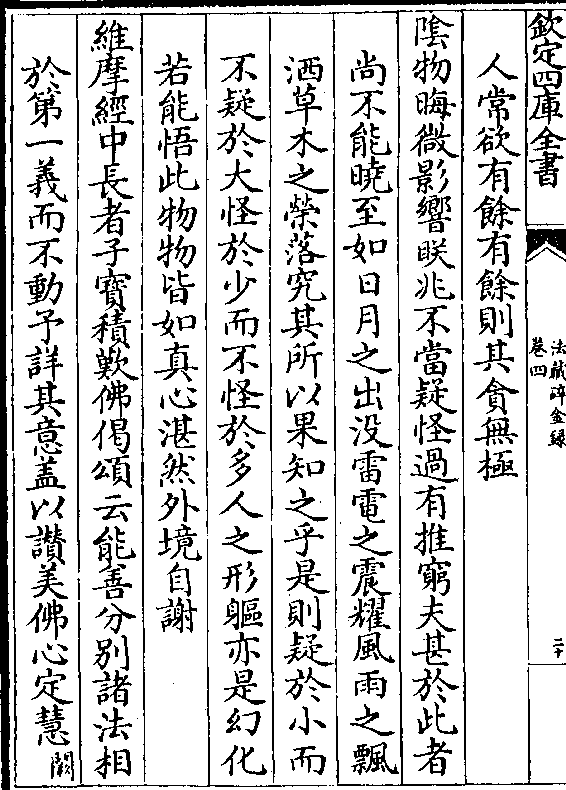 欽定四庫全書
法藏碎金錄
卷四
二十
人常欲有餘有餘則其貪無極
隂物晦微影響眹兆不當疑怪過有推窮夫甚於此者
尚不能曉至如日月之出没雷電之震耀風雨之飄
洒草木之榮落究其所以果知之乎是則疑於小而
不疑於大怪於少而不怪於多人之形軀亦是幻化
若能悟此物物皆如真心湛然外境自謝
維摩經中長者子寳積歎佛偈頌云能善分别諸法相
於第一義而不動予詳其意蓋以讃美佛心定慧闕